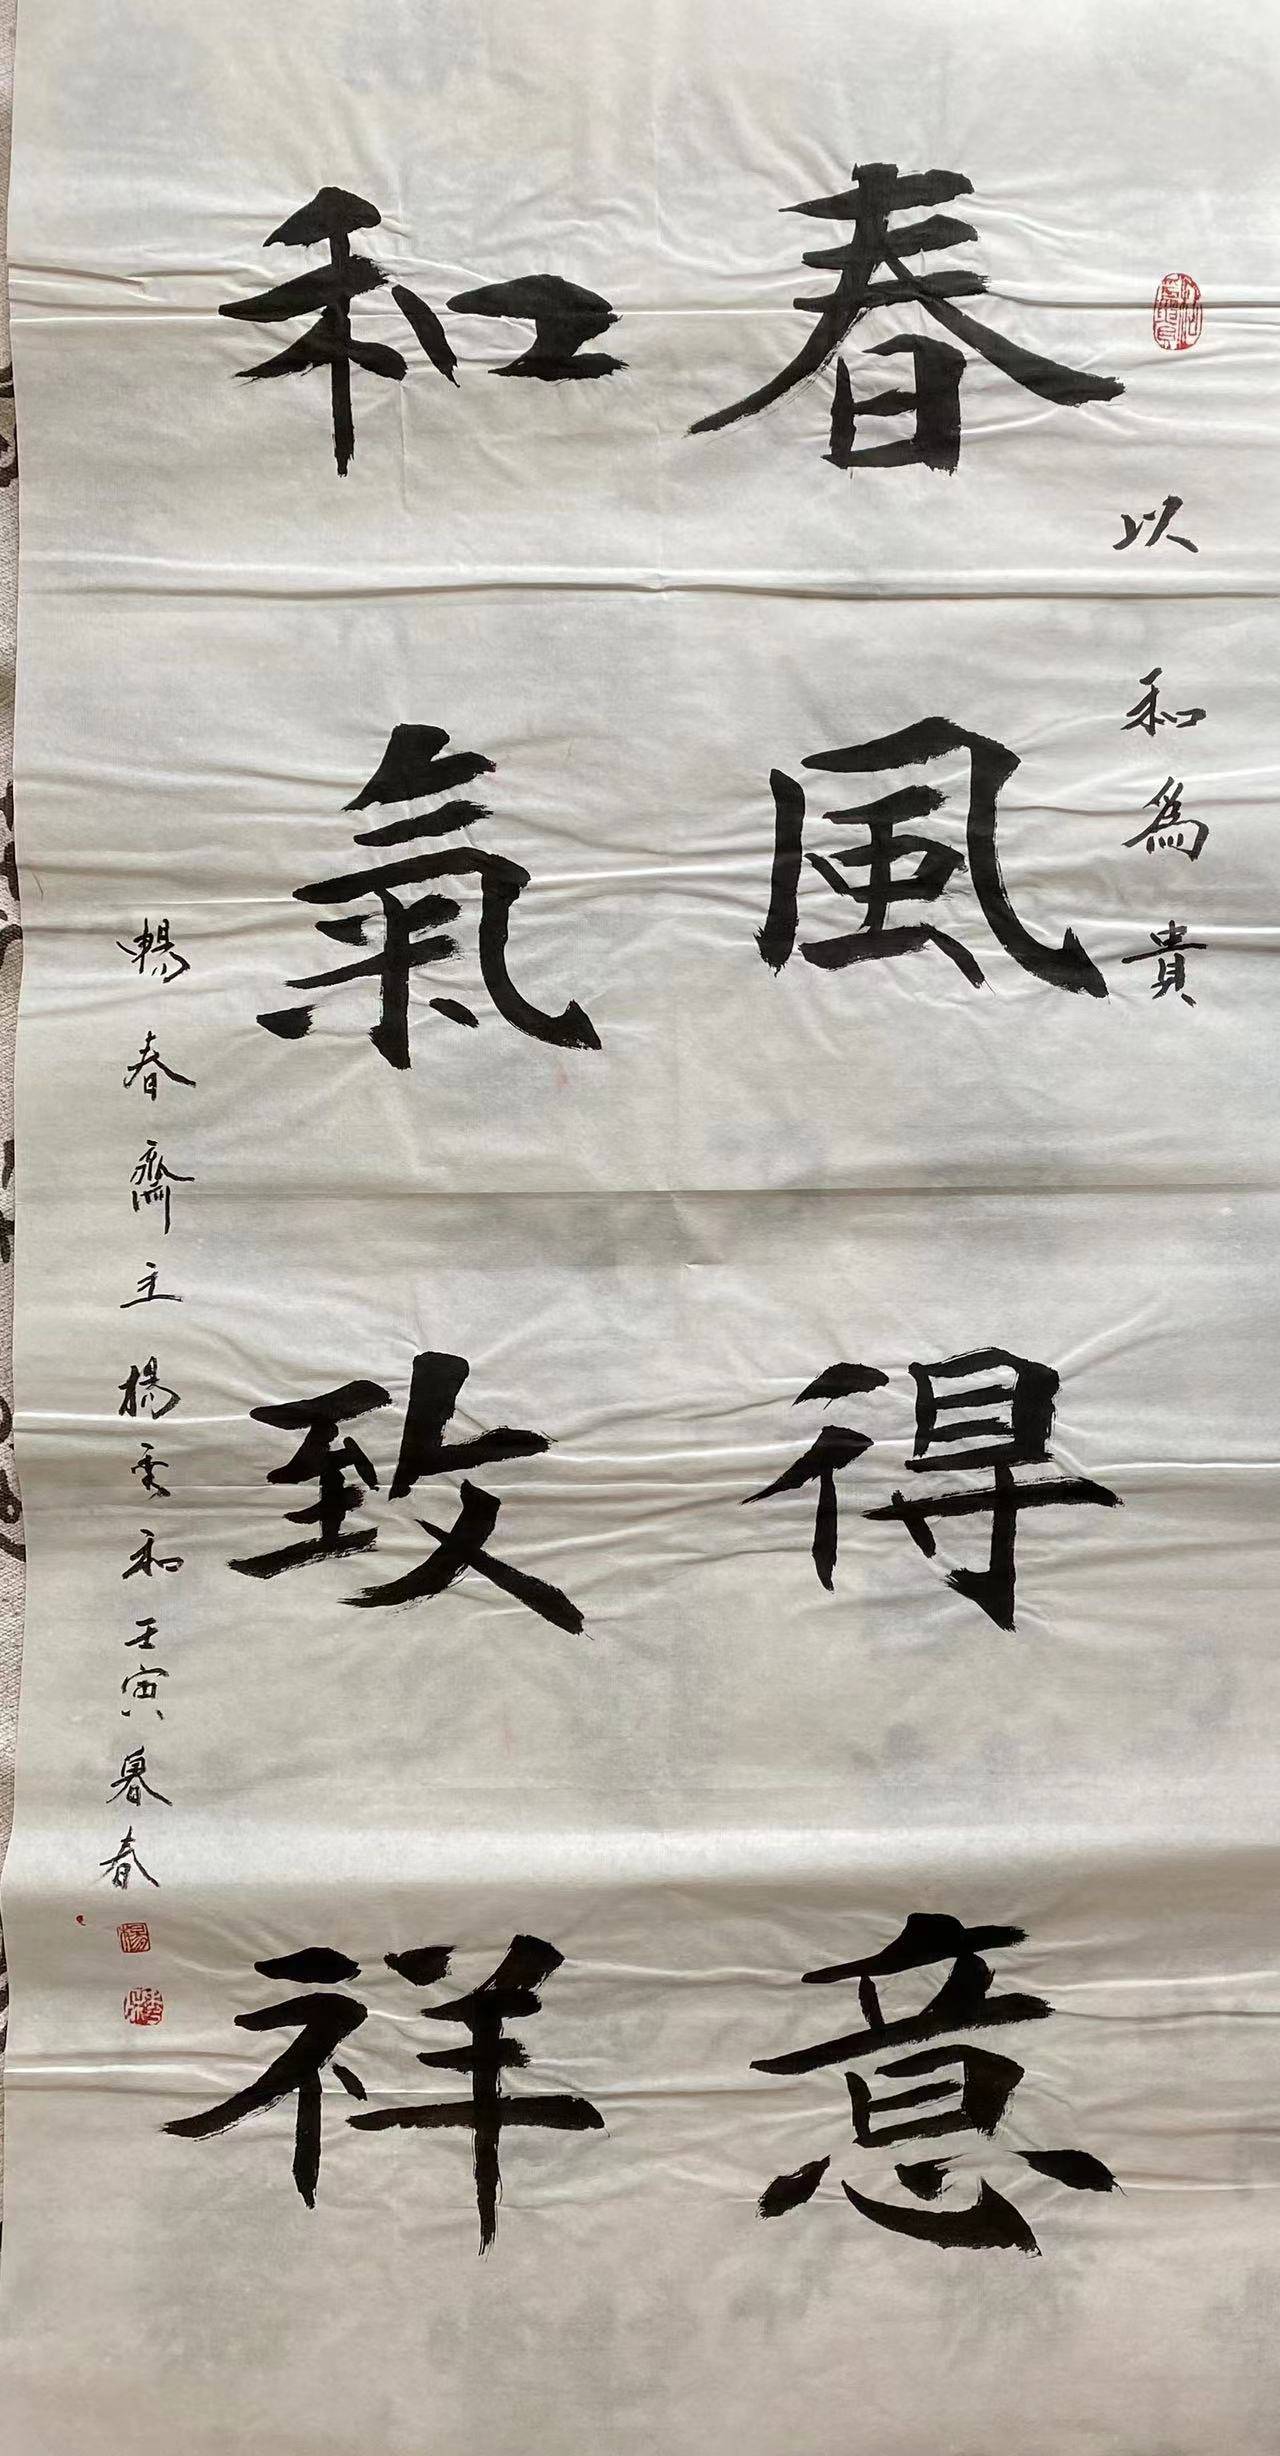 以和為貴
春風得意
和氣致祥
暢春齋主楊秉和壬寅暮春
楊